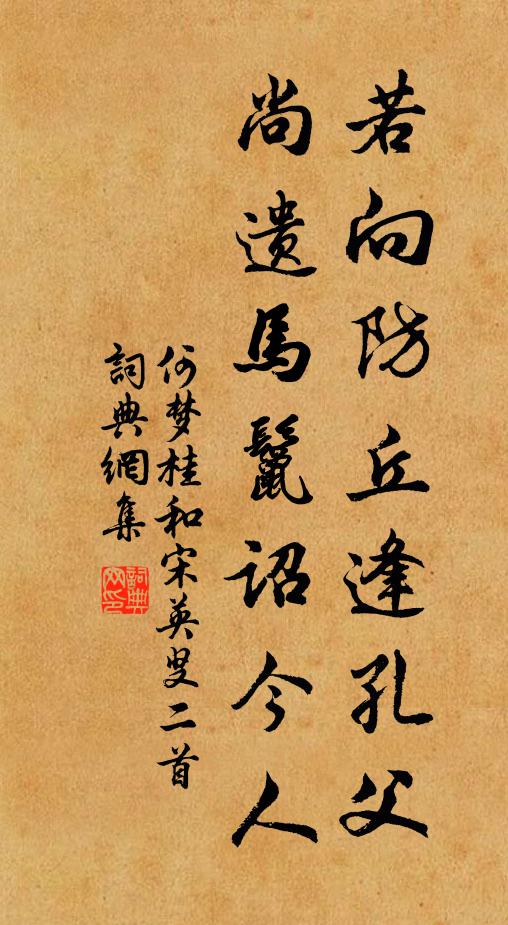 若向防丘逢孔父
尚遗馬鬣詔今人
何梦桂和宋英叟二首
詞典網集
詞典网印